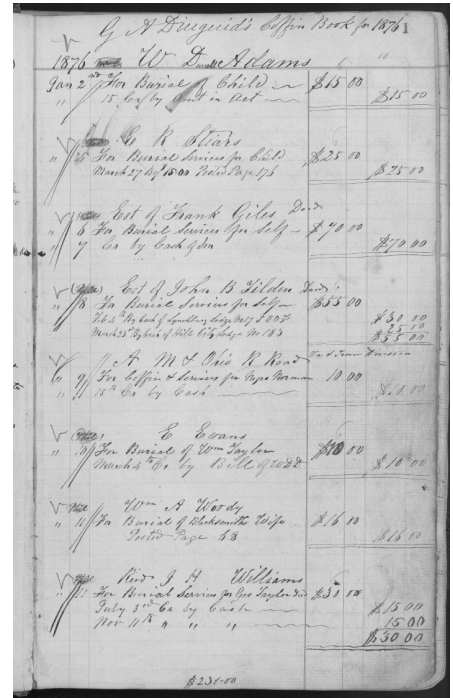 G A Diuguid's Coffin Book for 1876 1
1876 W D Adams
Jan 2nd For Burial of Child $15 00
" 15 Cr by Amt in Act $15 00
C R Sliars
" 5 For Burial Services for Child $25 00
March 27 By 15 00 Posted Page 176 $25 00
Est of Frank Giles Decd
" 6 For Burial Services for Self $70 00
" 7 Cr by Cash of Son $70 00
Est of John B Tilden Decd
" 8 For Burial Services for Self $55 00
Feb 4th By Cash of Lynchburg Lodge No 17 I.O.O.F $30 00
March 25th By Cash of Hill City Lodge No 183 25 00
$55 00
A M & Ohio R Road Va & Tenn Division
" 9 For Coffin & Services for Norman 10 00
" 11 15th Cr by Cash $10 00
E Evans
" 10 For Burial of Wm Taylor $10 00
March 4th Cr by Bill of $10 00
Wm A Woody
" 11 For Burial of Blacksmiths Wife $16 00
Posted Page 68 $16 00
Revd J H Williams
" 11 For Burial Services for Geo Taylor Decd $30 00
July 3rd Cr by Cash $15 00
Nov 11th " " " 15 00
$30 00
$231-00